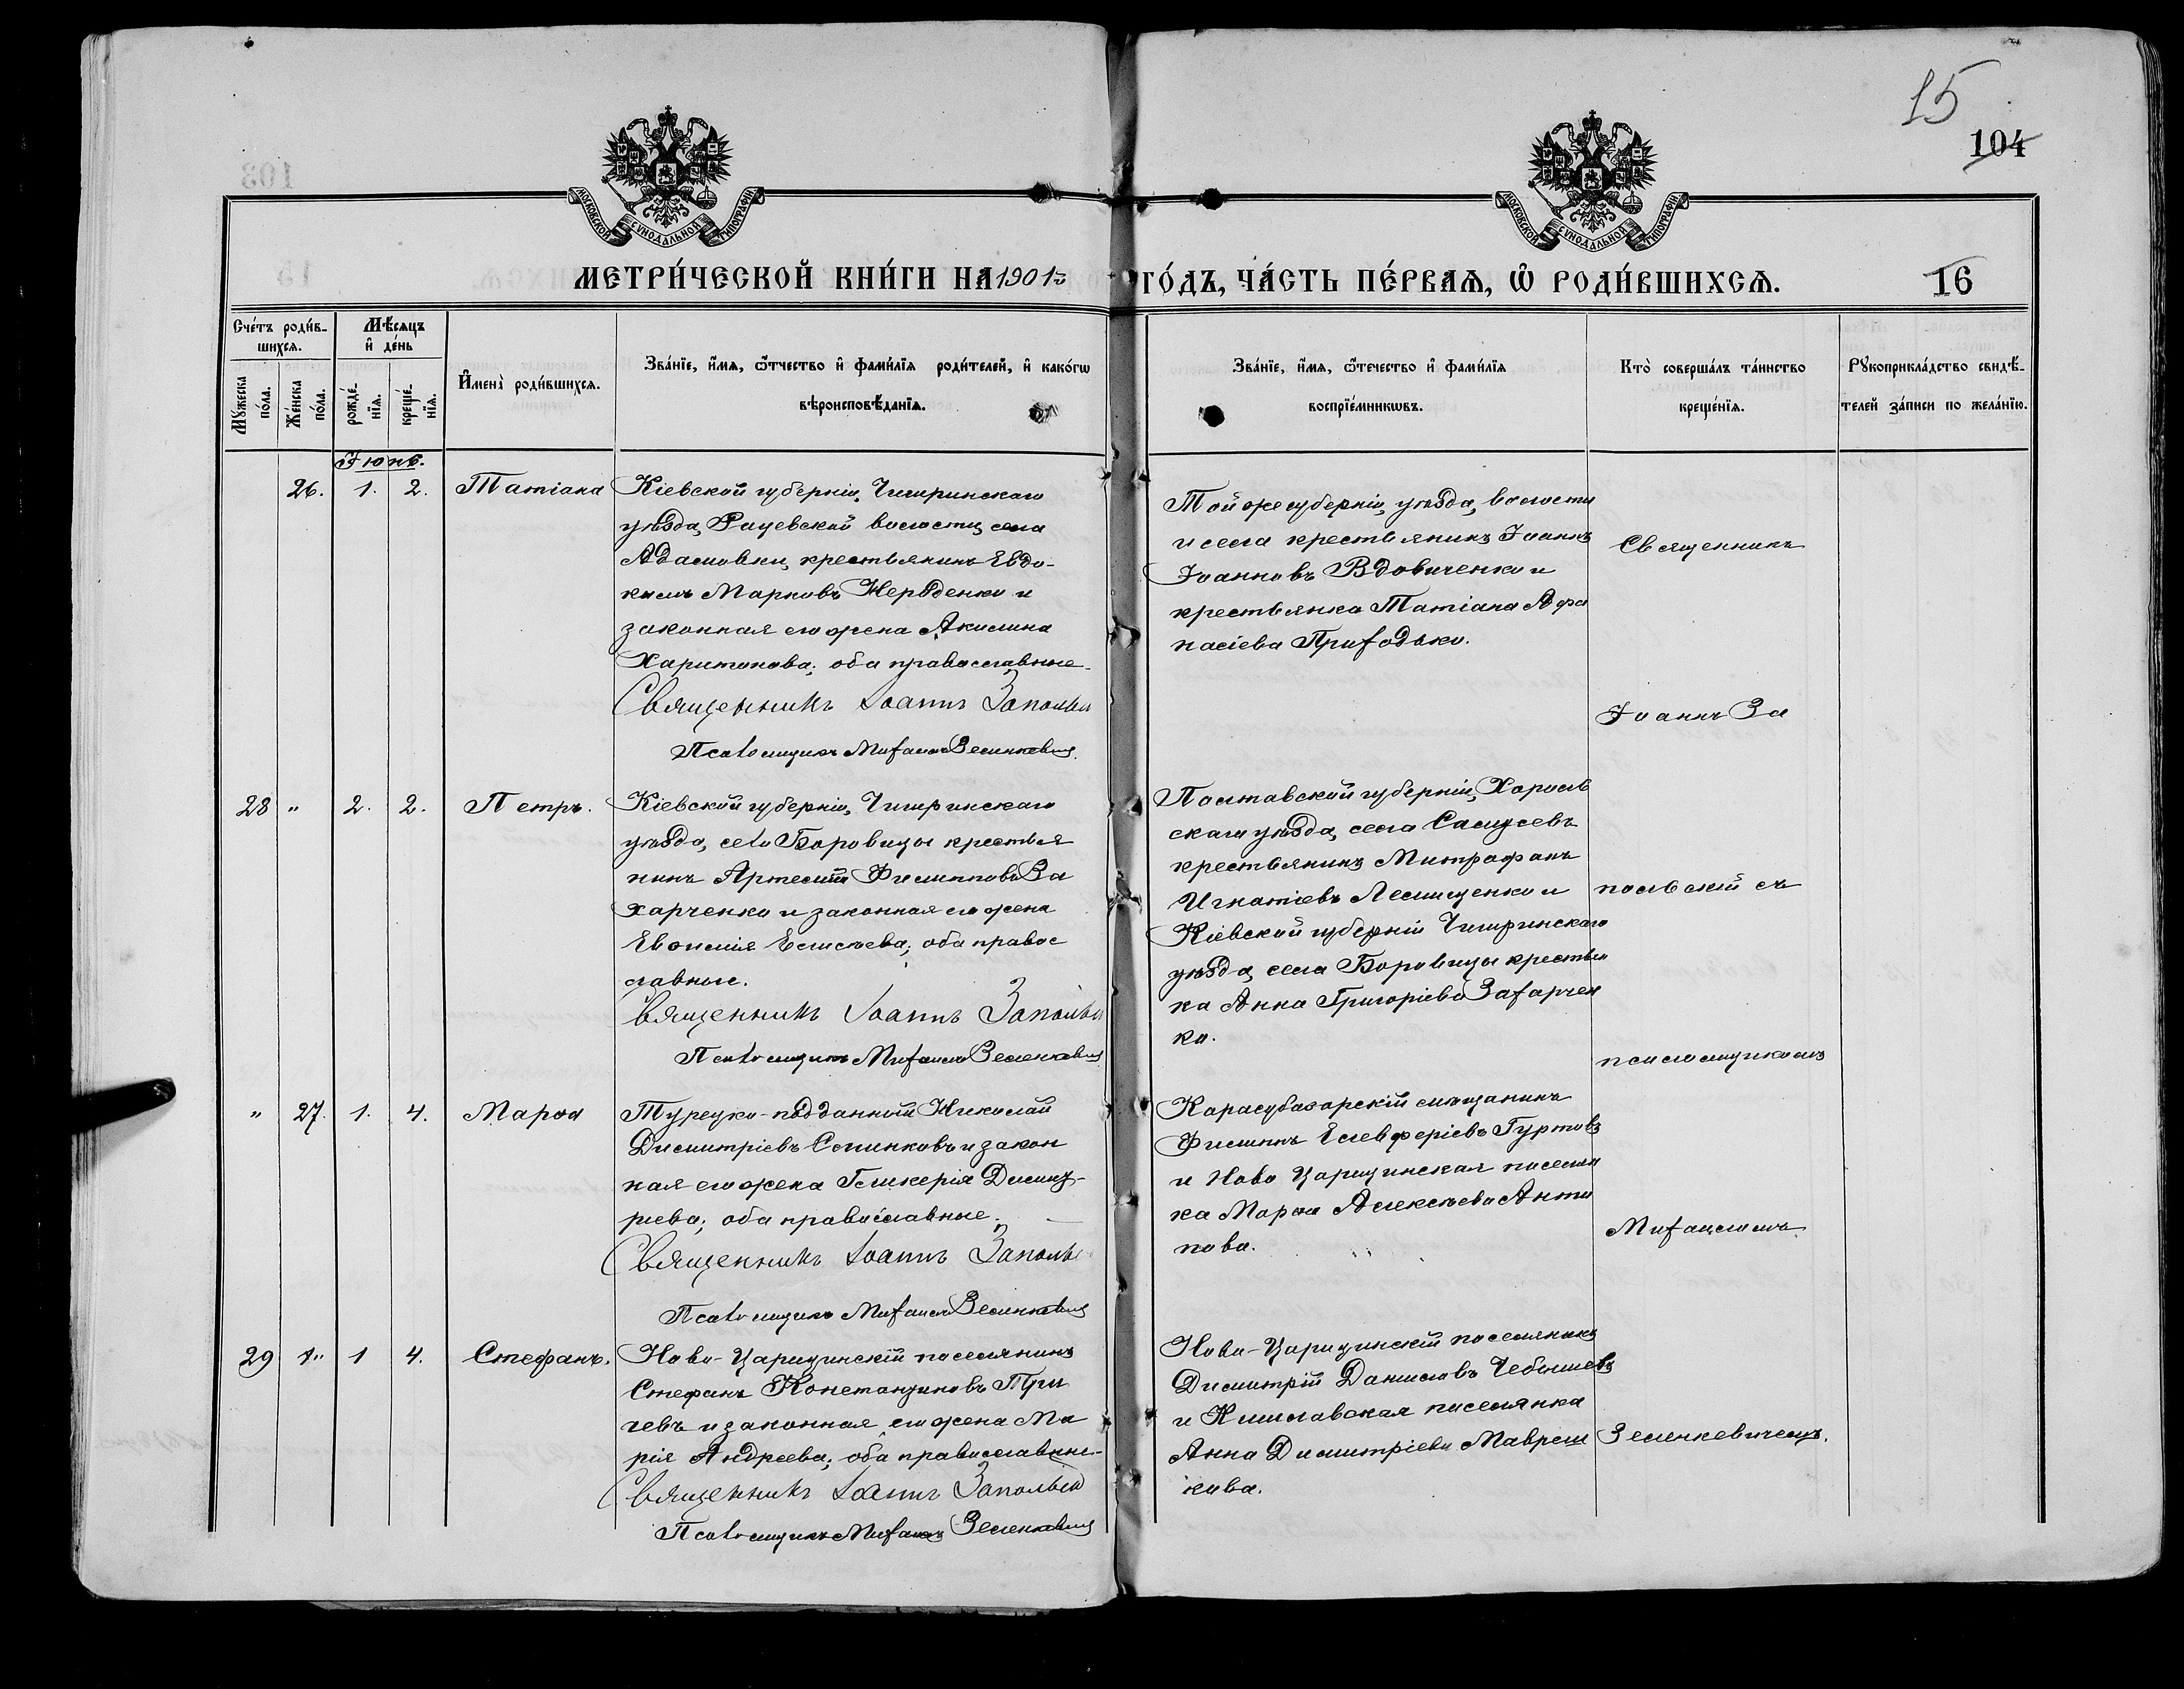 15
104
МОСКОВСКОЙ СѴНОДАЛЬНОЙ ТИПОГРАФІИ
МОСКОВСКОЙ СѴНОДАЛЬНОЙ ТИПОГРАФІИ
МЕТРИ́ЧЕСКОЙ КНИ́ГИ НА 1901й ГО́ДЪ, ЧА́СТЬ ПЕ́РВАѦ, Ѽ РОДИ́ВШИХСѦ.
16
Сче́тъ роди́в-
шихсѧ.
Мѣ́сѧцъ
и҆ де́нь
Мꙋ́жеска
по́ла.
Же́нска
по́ла.
рожде́-
нїѧ.
креще́-
нїѧ.
И҆мена̀ роди́вшихсѧ.
Зва́нїе, и҆́мѧ, ѻ҆́тчество и҆ фами́лїѧ роди́телей, и҆ како́гѡ
вѣроисповѣ́данїѧ.
Зва́нїе, и҆́мѧ, ѻ҆те́чество и҆ фами́лїѧ
воспрїе́мникѡвъ.
Кто̀ соверша́лъ та́инство
креще́нїѧ.
Рꙋкоприкла́дство свидѣ́-
телей за́писи по жела́нїю.
Іюнь.
26. 1. 2. Татіана
Кіевской губерніи, Чигиринскаго
уѣзда, Рацевской волости, села
Адамовки, крестьянинъ Евдо-
кимъ Марковъ
законная его жена Акилина
Харитонова; оба православные.
Священникъ Іоаннъ Запольскій
Псаломщикъ Михаилъ Зеленкевичъ.
Той же губерніи, уѣзда, волости
и села крестьянинъ Іоаннъ
Іоанновъ Вдовиченко и
крестьянка Татіана Афа
насіева Приходько.
28 " 2. 2. Петръ.
Кіевской губерніи, Чигиринскаго
уѣзда, села Боровицы крестья
нинъ Артемій Филипповъ За
харченко и законная его жена
Евфимія Елисѣева; оба правос
лавные.
Священникъ Іоаннъ Запольскій
Псаломщикъ Михаилъ Зеленкевичъ
Полтавской губерніи, Хороль
скаго уѣзда, села
крестьянинъ Митрофанъ
Игнатіевъ Лемищенко и
Кіевской губерніи Чигиринскаго
уѣзда, села Боровицы крестьян
ка Анна Григоріева Захарчен
ко.
" 27. 1. 4. Марѳа
Турецко-подданный Николай
Димитріевъ и закон
ная его жена Гликерія Димит-
ріева; оба православные.
Священникъ Іоаннъ Запольскій
Псаломщикъ Михаилъ Зеленкевичъ
Карасубазарскій мѣщанинъ
Филиппъ Елевферіевъ Гуртовъ
и Ново Царицынская поселян
ка Марѳа Алексѣева Анти
пова.
29 " 1 4. Стефанъ.
Ново-Царицынскій поселянинъ
Стефанъ Константиновъ
и законная его жена Ма
рія Андреева; оба православные.
Священникъ Іоаннъ Запольскій
Псаломщикъ Михаилъ Зеленкевичъ
Ново-Царицынскій поселянинъ
Димитрій Даниловъ Чебышевъ
и Кишлавская поселянка
Анна Димитріева Мавреш
кова.
Священникъ
Іоаннъ За
польскій съ
псаломщикомъ
Михаиломъ
Зеленкевичемъ.